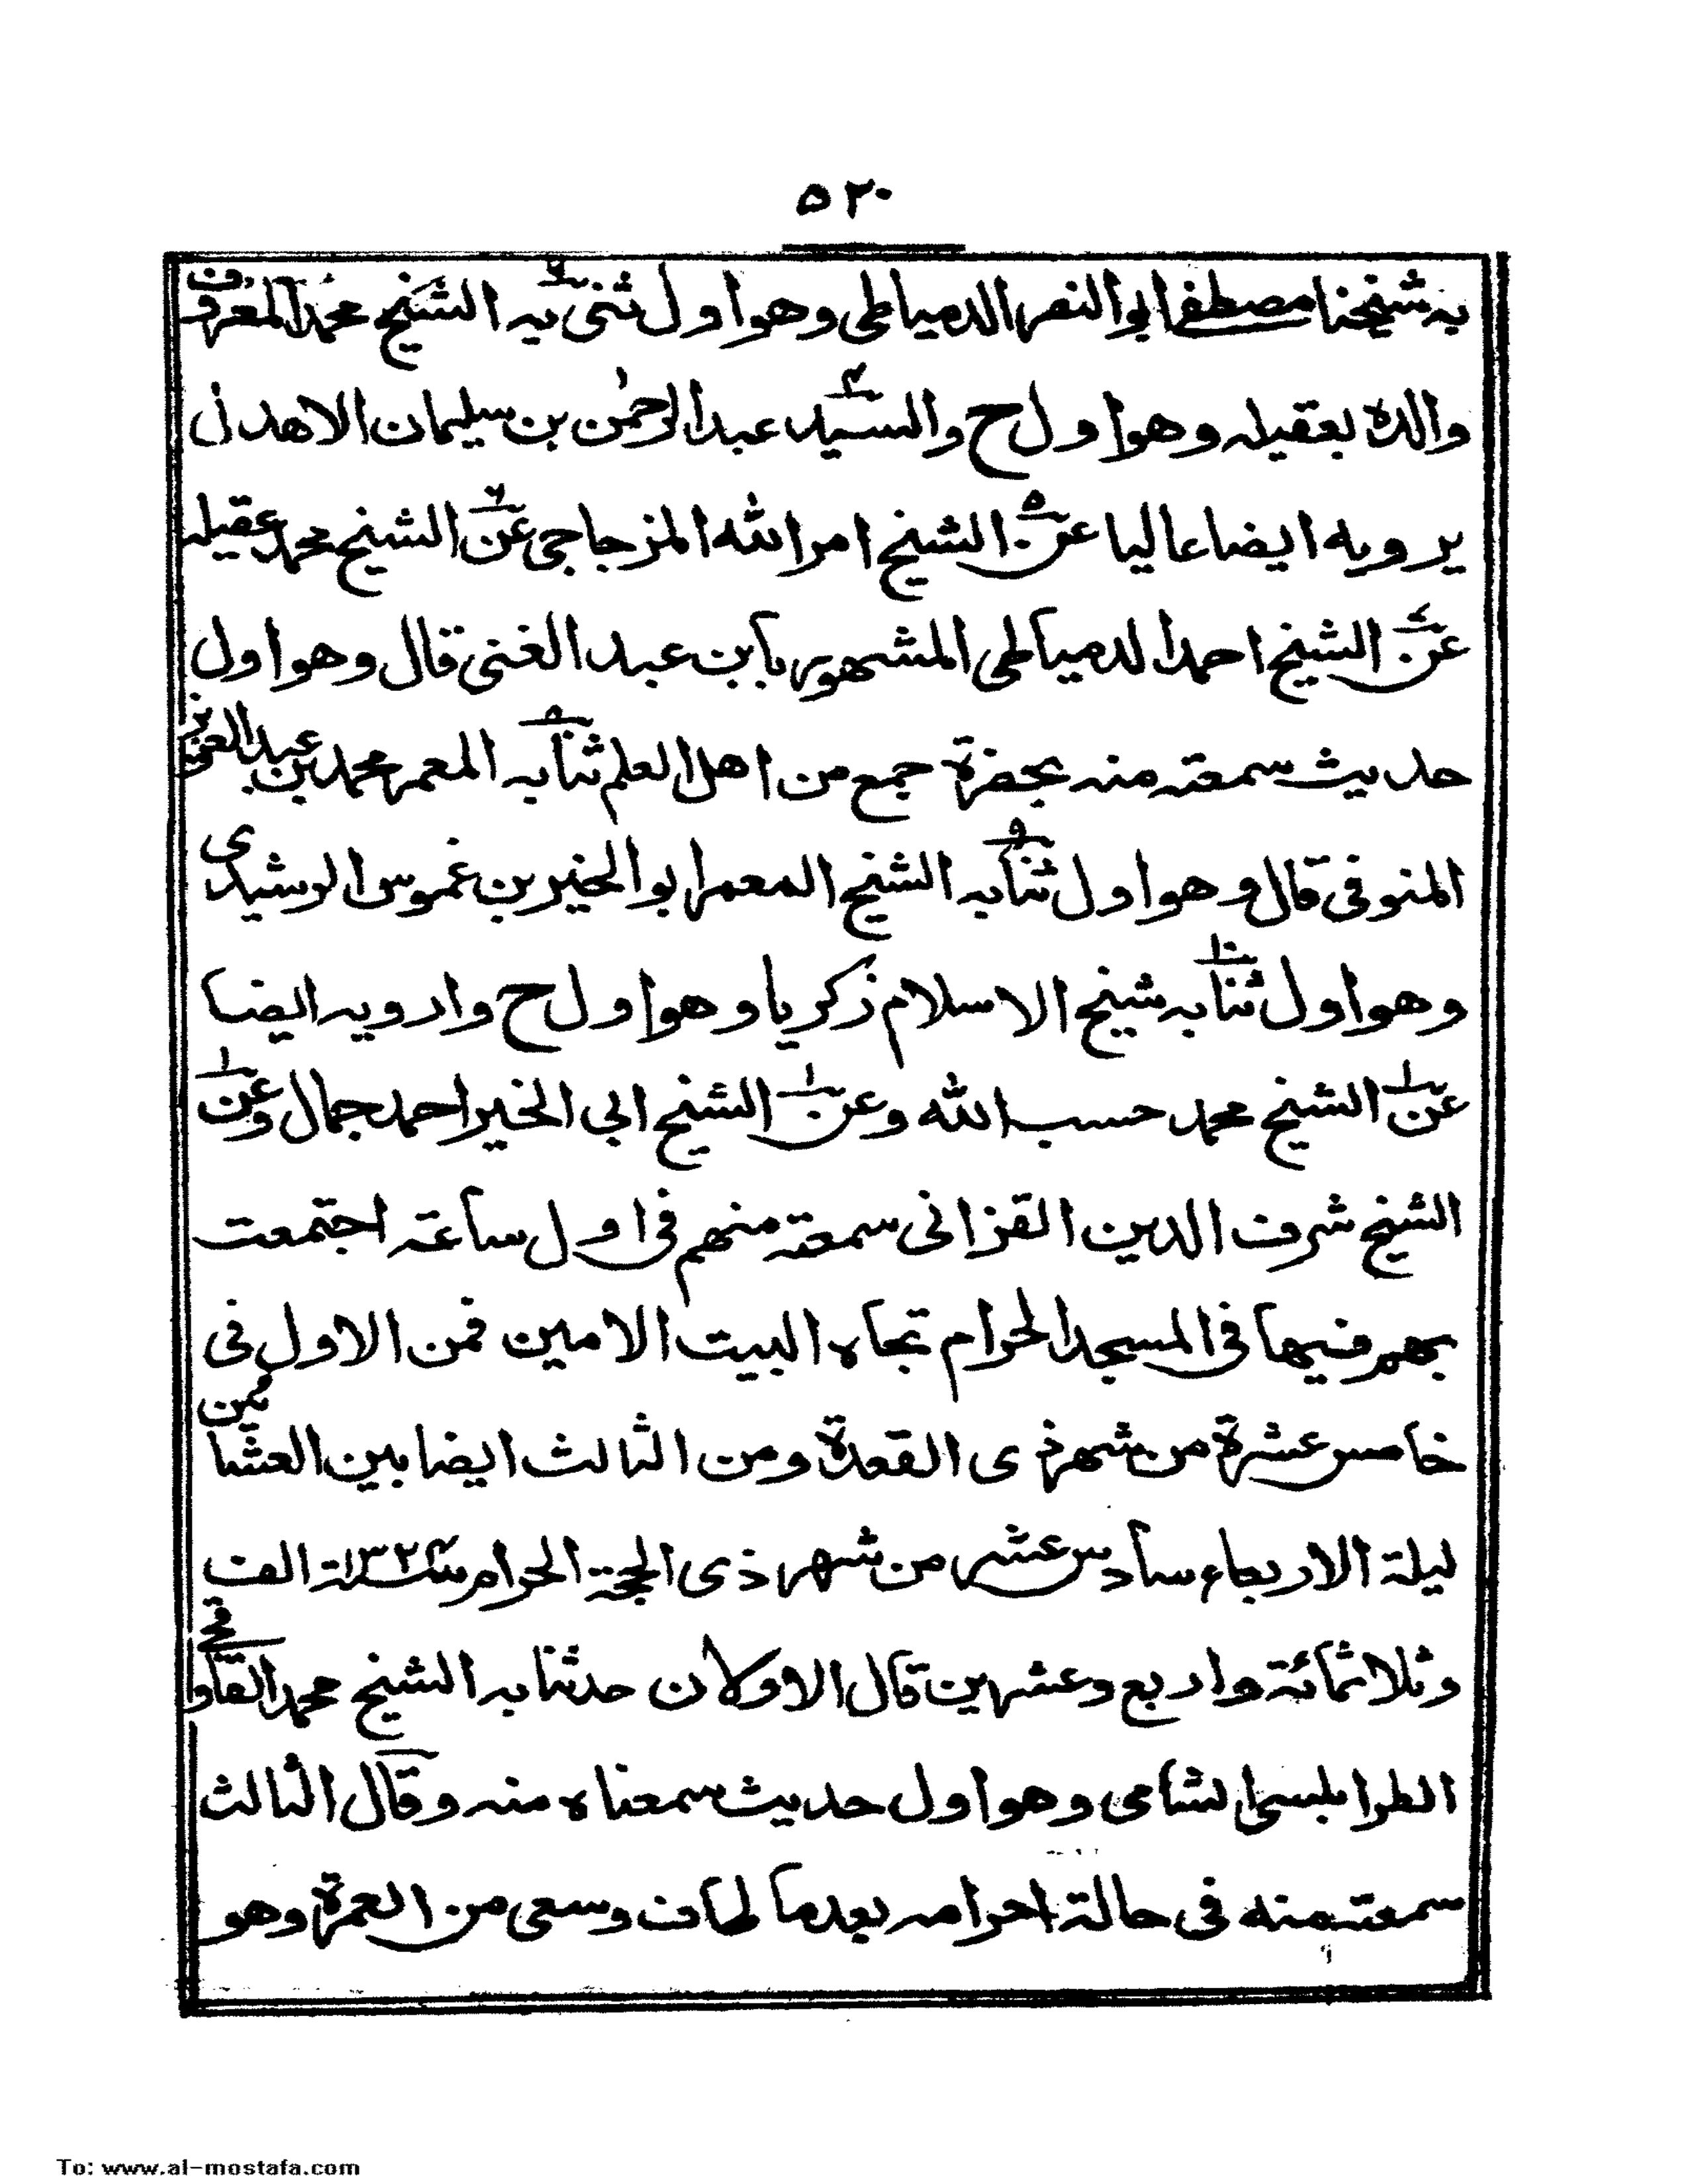 ٥٢٠
به شيخنا مصطفى ابو النصر الدمياطى وهو اول ثنى به الشيخ محمد المعروف
والده بعقيله وهو اول ح والسيد عبد الرحمن بن سليمان الاهدل
يرويه ايضا عاليا عن الشيخ امر الله المزجاجى عن الشيخ محمد عقيله
عن الشيخ احمد الدمياطى المشهور بابن عبد الغنى قال وهو اول
حديث سمعته منه بحضرة جمع من اهل العلم ثنا به المعمر محمد بن عبد العزيز
المنوفى قال وهو اول ثنا به الشيخ المعمر ابو الخير بن غموس الرشيدى
وهو اول ثنا به شيخ الاسلام زكريا وهو اول ح وارويه ايضا
عن الشيخ محمد حسب الله وعن الشيخ ابي الخير احمد جمال وعن
الشيخ شرف الدين القزانى سمعته منهم فى اول ساعة اجتمعت
بهم فيها فى المسجد الحرام تجاه البيت الامين فمن الاول فى
خامس عشرة من شهر ذى القعدة ومن الثالث ايضا بين العشائين
ليلة الاربعاء سادس عشر من شهر ذى الحجة الحرام سنة ١٣٢٤ الف
وثلاثمائة واربع وعشرين قال الاولان حدثنا به الشيخ محمد القاوقجى
الطرابلسى الشامى وهو اول حديث سمعناه منه وقال الثالث
سمعته منه فى حالة احرامه بعدما طاف وسعى من العمرة وهو
To: www.al-mostafa.com